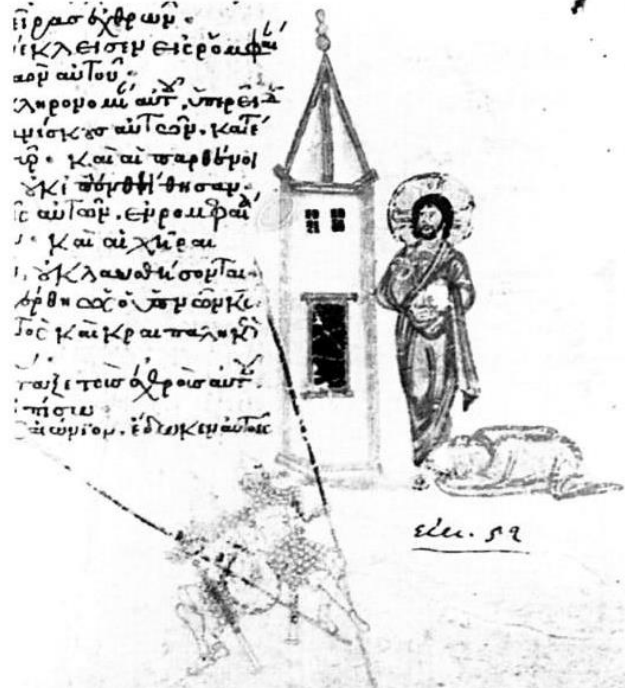 εῖρασ ἐχθρων·
έκλεισεν εἰσ ρομφαί
λαὸν αὐτοῦ·
κληρονομί αὐτ, ὑπερεῖδ
νίσκουσ αὐτῶν. κατέ
πῦρ· καὶ αἱ παρθένοι
οὐκ ἐπένθησαν·
ῖσ αὐτῶν. ἐν ρομφαί
· καὶ αἱ χῆραι
, οὐ κλαυσθήσονται·
έρθη ὡσ ὁ ὑπνῶν κσ
τὸσ καὶ κραιπαληκὼ
ταξε τοὺσ ἐχθροὺσ αὐτοῦ
ὀπίσω
αἰώνιον. ἔδωκεν αὐτοῖσ
εἰκ. 52